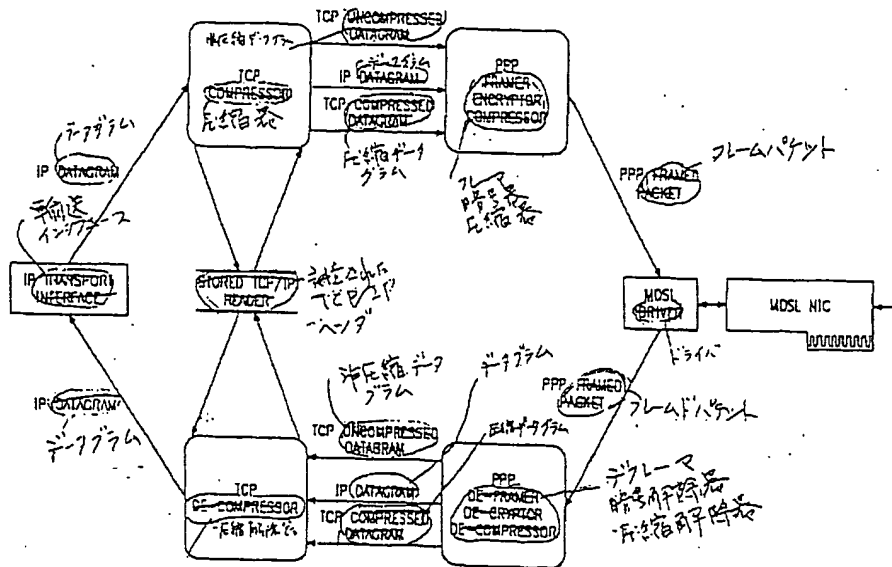 TCP UNCOMPRESSED
DATAGRAM
非圧縮データグラム
TCP
COMPRESSOR
圧縮器
データグラム
IP DATAGRAM
TCP COMPRESSED
DATAGRAM
圧縮データ
グラム
PPP
FRAMER
ENCRYPTOR
COMPRESSOR
フレーマ
暗号器
圧縮器
データグラム
IP DATAGRAM
PPP FRAMED
PACKET
フレームパケット
輸送
インタフェース
IP TRANSPORT
INTERFACE
STORED TCP/IP
HEADER
ヘッダ
MDSL
DRIVER
ドライバ
MDSL NIC
IP DATAGRAM
データグラム
非圧縮データ
グラム
TCP UNCOMPRESSED
DATAGRAM
データグラム
IP DATAGRAM
圧縮データグラム
TCP COMPRESSED
DATAGRAM
PPP FRAMED
PACKET
フレームドパケット
TCP
DE-COMPRESSOR
圧縮解除器
PPP
DE-FRAMER
DE-CRYPTOR
DE-COMPRESSOR
デフレーマ
暗号解除器
圧縮解除器